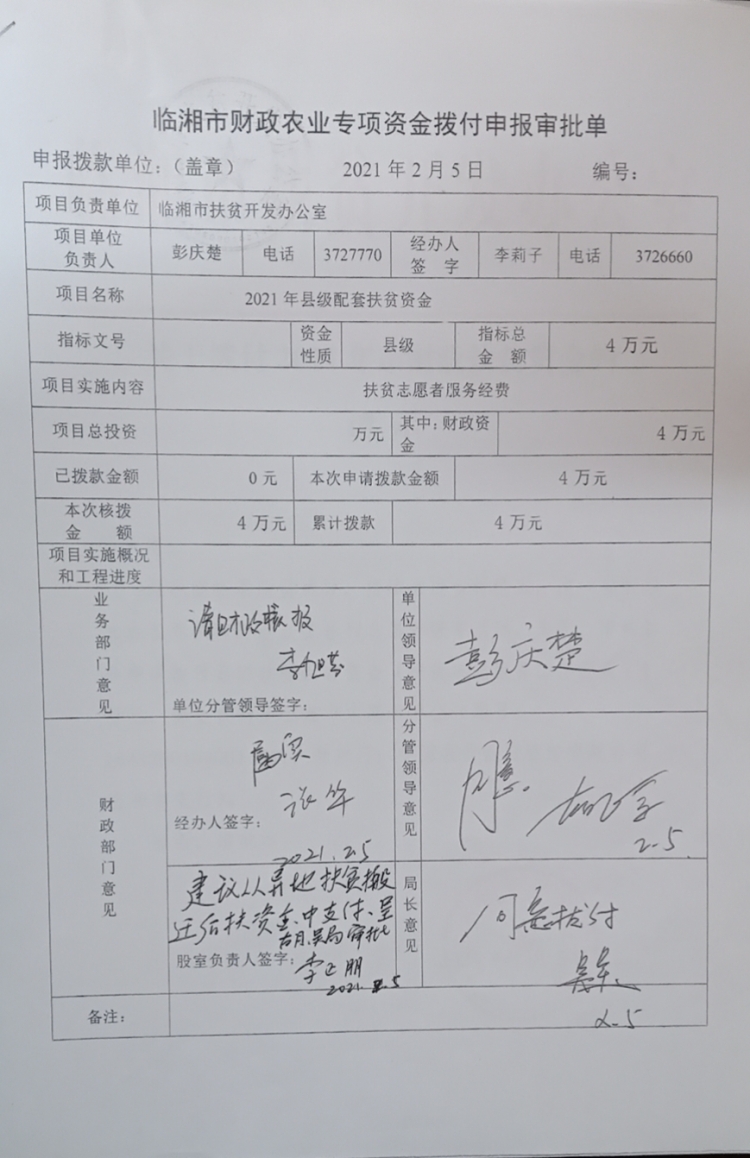 临湘市财政农业专项资金拨付申报审批单
申报拨款单位：（盖章） 2021 年 2 月 5 日 编号：
项目负责单位 临湘市扶贫开发办公室
项目单位负责人 彭庆楚 电话 3727770 经办人签字 李莉子 电话 3726660
项目名称 2021 年县级配套扶贫资金
指标文号 资金性质 县级 指标总金额 4 万元
项目实施内容 扶贫志愿者服务经费
项目总投资 万元 其中：财政资金 4 万元
已拨款金额 0 元 本次申请拨款金额 4 万元
本次核拨金额 4 万元 累计拨款 4 万元
项目实施概况和工程进度
业务部门意见
请财政账报
单位分管领导签字：
单位领导意见
彭庆楚
财政部门意见
属实
张华
经办人签字：
2021.2.5
分管领导意见
同意
2.5.
建议从易地扶贫搬
迁后扶资金中支付、呈
胡、吴局审批
股室负责人签字：李正朋
2021.2.5
局长意见
同意拨付
2.5
备注：